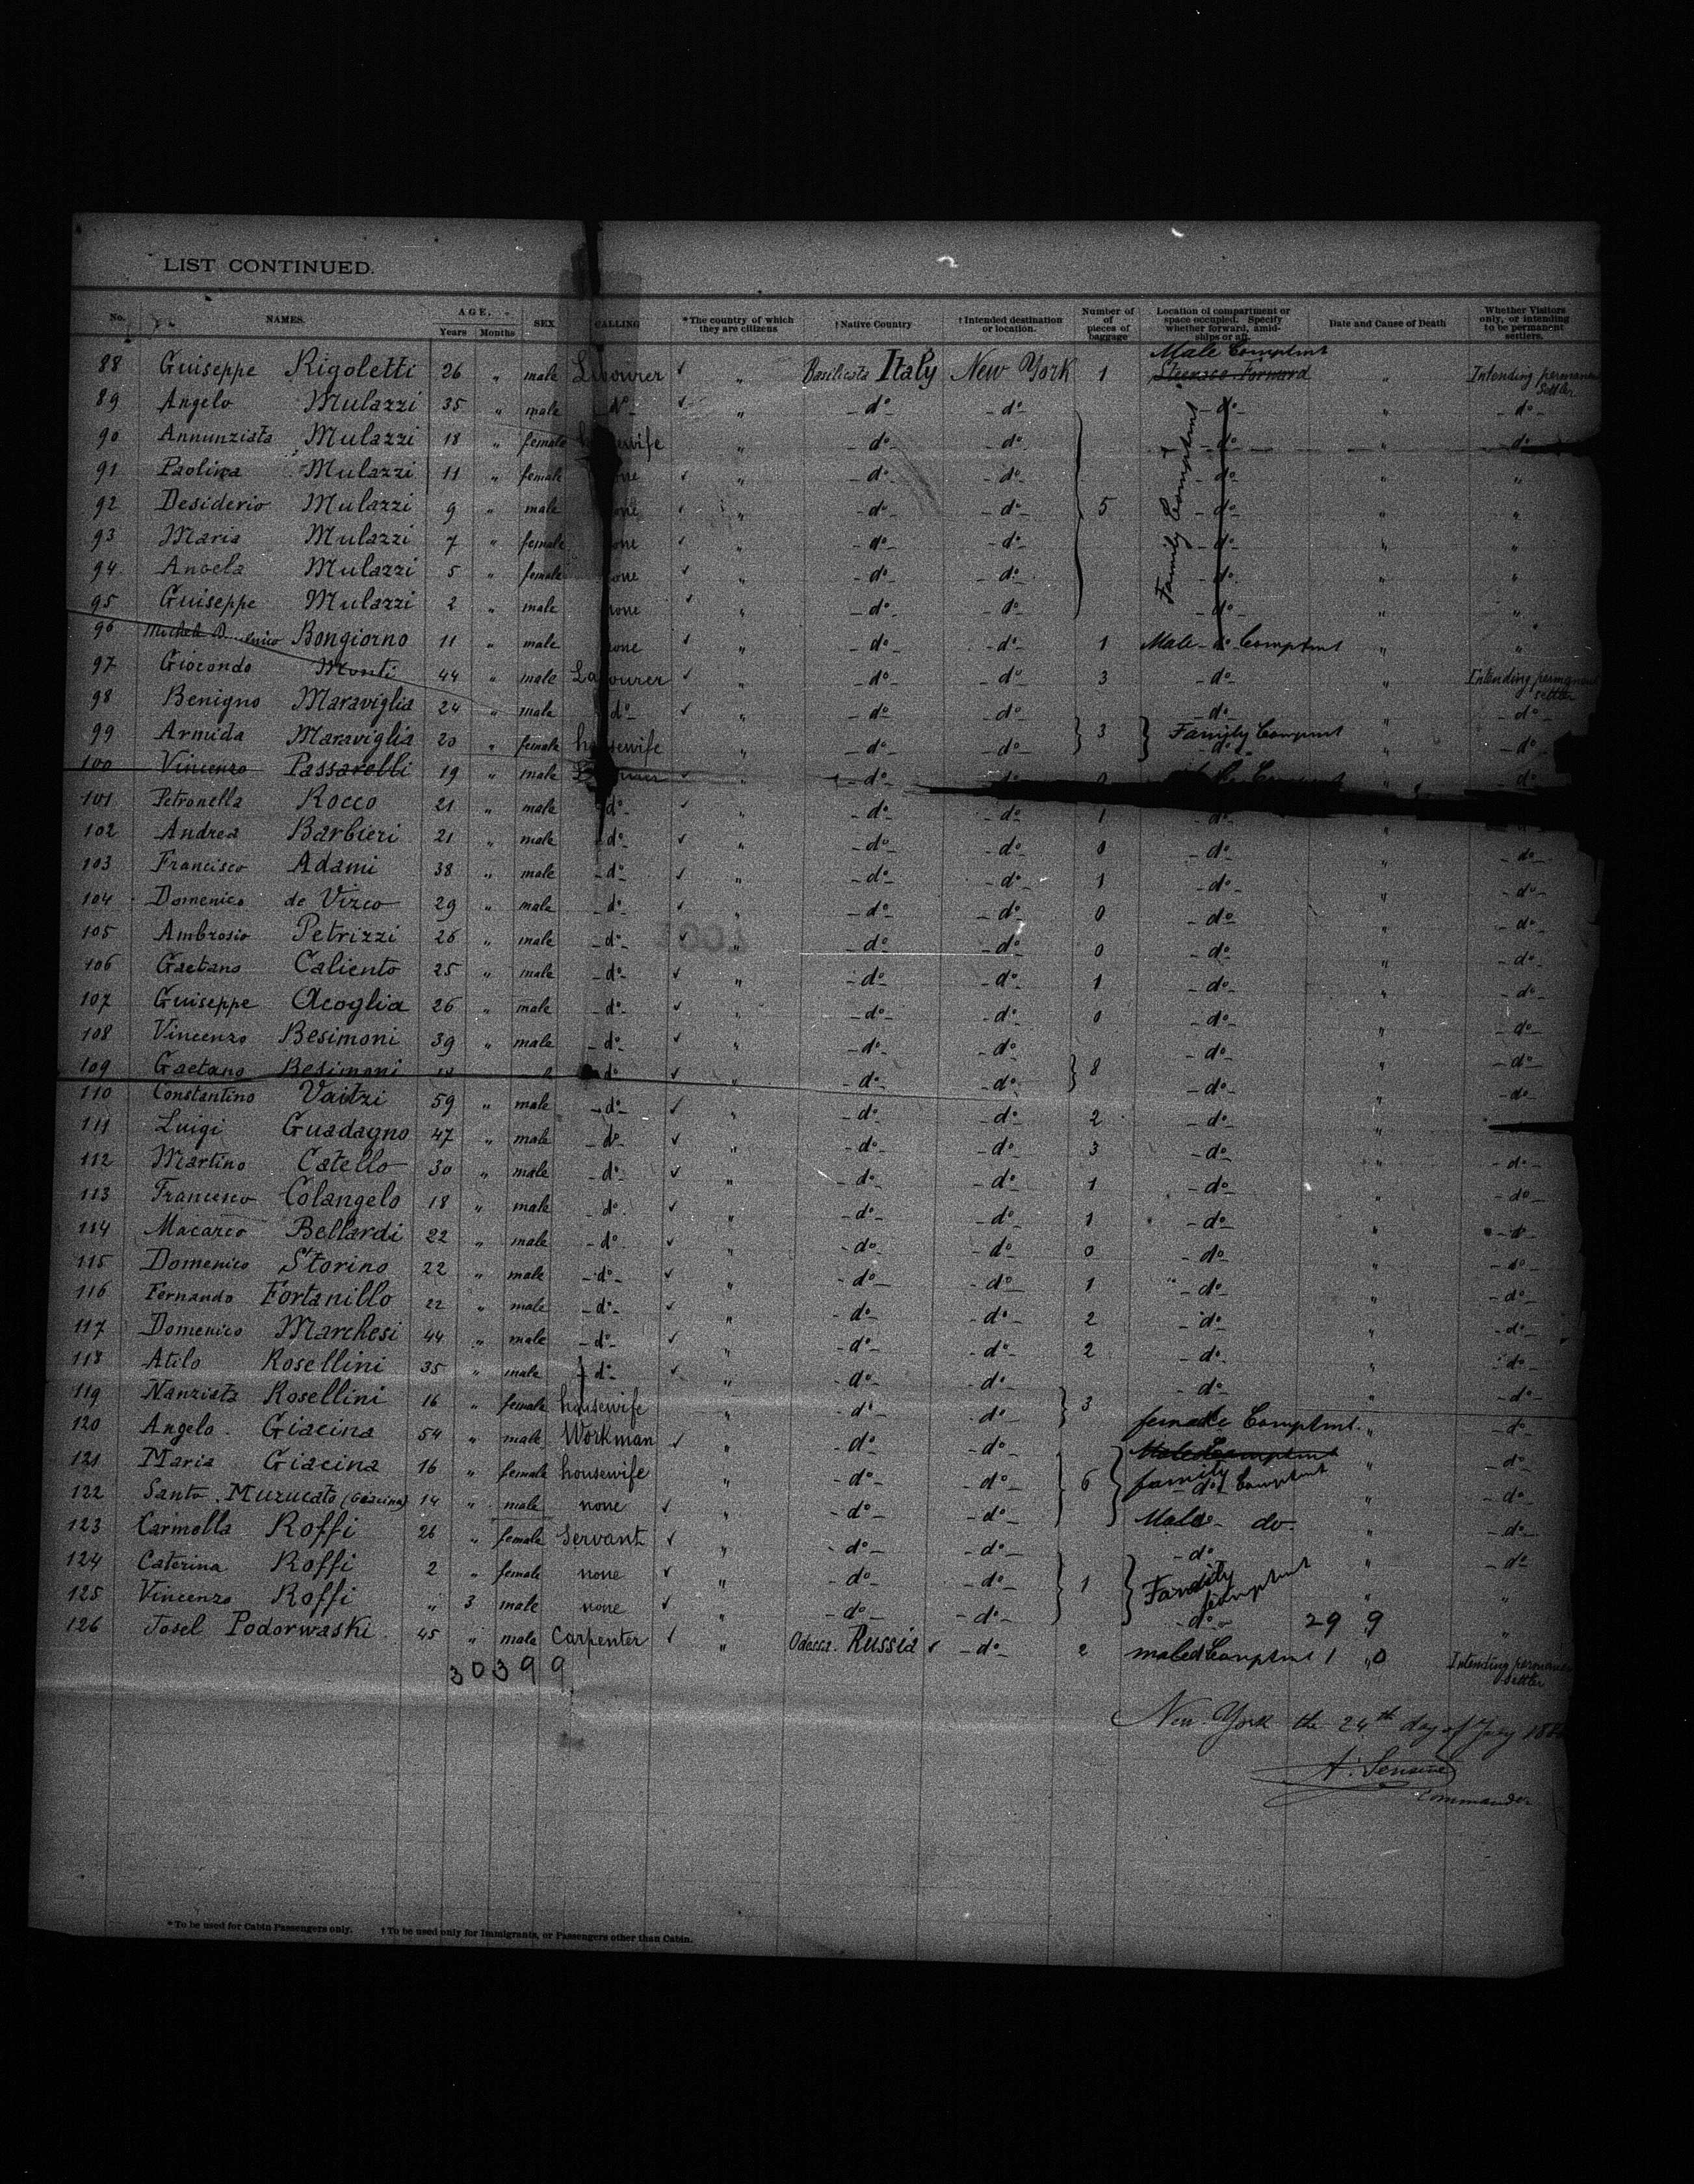 LIST CONTINUED.
No. NAMES. AGE, Years Months SEX CALLING *The country of which they are citizens †Native Country †Intended destination or location. Number of pieces of baggage Location of compartment or space occupied. Specify whether forward, amidships or aft. Date and Cause of Death Whether Visitors only, or intending to be permanent settlers.
Male Comptmt
88 Guiseppe Rigoletti 26 " male Labourer " Basilicata Italy New York 1 Steerage Forward " Intending permanent Settler
89 Angelo Mulazzi 35 " male do " do do do " do
90 Annunziata Mulazzi 18 " female housewife " do do do " do
91 Paolina Mulazzi 11 " female none " do do do " "
92 Desiderio Mulazzi 9 " male none " do do 5 Family Comptmt do " "
93 Maria Mulazzi 7 " female none " do do do " "
94 Angela Mulazzi 5 " female none " do do do " "
95 Guiseppe Mulazzi 2 " male none " do do do " "
96 Michele Domenico Bongiorno 11 " male none " do do 1 Male do Comptmt " "
97 Giocondo Monti 44 " male Labourer " do do 3 do " Intending permanent settler
98 Benigno Maraviglia 24 " male do " do do do " do
99 Armida Maraviglia 20 " female housewife " do do 3 Family Comptmt do " do
100 Vincenzo Passarelli 19 " male " do do 0 Comptmt do
101 Petronella Rocco 21 " male do " do do 1 do "
102 Andrea Barbieri 21 " male do " do do 0 do " do
103 Francisco Adami 38 " male do " do do 1 do " do
104 Domenico de Virco 29 " male do " do do 0 do " do
105 Ambrosio Petrizzi 26 " male do " do do 0 do " do
106 Gaetano Caliento 25 " male do " do do 1 do " do
107 Guiseppe Acoglia 26 " male do " do do 0 do " do
108 Vincenzo Besimoni 39 " male do " do do do " do
109 Gaetano Besimoni do " do do 8 do " do
110 Constantino Vaitzi 59 " male do " do do 2 do "
111 Luigi Guadagno 47 " male do " do do 3 do " do
112 Martino Catello 30 " male do " do do 1 do " do
113 Francesco Colangelo 18 " male do " do do 1 do " do
114 Macarco Bellardi 22 " male do " do do 0 do " do
115 Domenico Storino 22 " male do " do do 1 do " do
116 Fernando Fortanillo 22 " male do " do do 2 do " do
117 Domenico Marchesi 44 " male do " do do 2 do " do
118 Atilo Rosellini 35 " male do " do do do " do
119 Nanziata Rosellini 16 " female housewife " do do 3 female Comptmt. " do
120 Angelo Giacina 54 " male Workman " do do Male Comptmt " do
121 Maria Giacina 16 " female housewife " do do 6 family do Comptmt " do
122 Santo Muzucato (Giacina) 14 " male none " do do Male do " do
123 Carmella Roffi 26 " female Servant " do do do " do
124 Caterina Roffi 2 " female none " do do 1 Family Comptmt " "
125 Vincenzo Roffi " 3 male none " do do do 29 9 "
126 Josel Podorwaski 45 " male Carpenter " Odessa Russia do 2 male Comptmt 1 " 0 Intending permanent Settler
30399
New York the 24th day of July
Commander
*To be used for Cabin Passengers only. †To be used only for Immigrants, or Passengers other than Cabin.